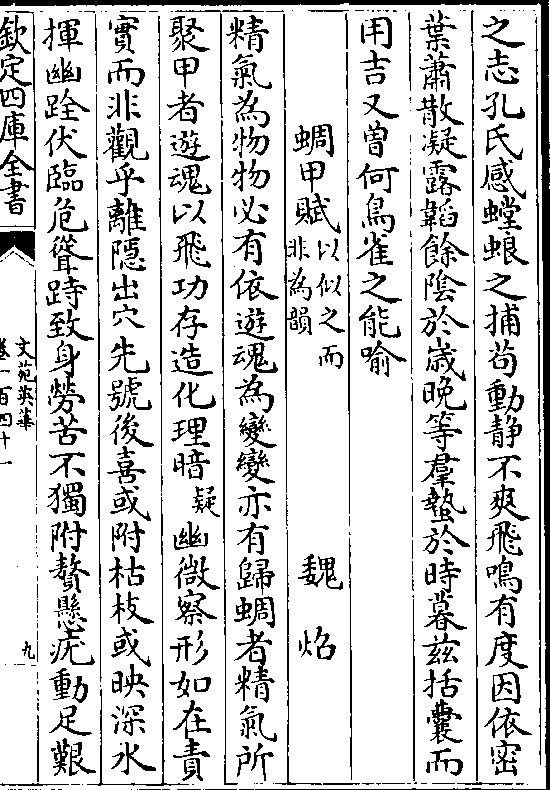 之志孔氏感螳蜋之捕苟動静不爽飛鳴有度因依密
葉蕭散凝露韜餘陰於嵗晚等羣蟄於時暮兹括囊而
用吉又曽何鳥雀之能喻
蜩甲賦以似之而非為韻 魏炲
精氣為物物必有依遊魂為變變亦有歸蜩者精氣所
聚甲者遊魂以飛功存造化理暗疑幽微察形如在責
實而非觀乎離隠出穴先號後喜或附枯枝或映深水
揮幽跧伏臨危聳跱致身勞苦不獨附贅懸疣動足艱
欽定四庫全書
文苑英華
卷一百四十一
九